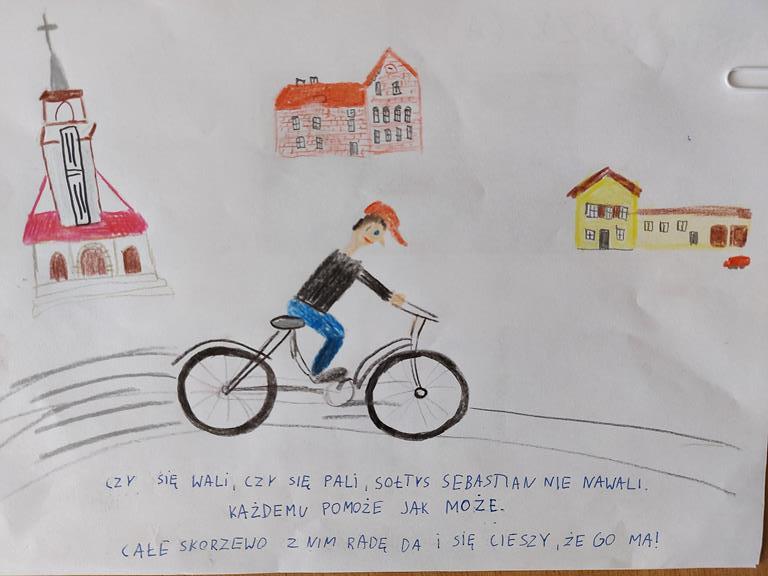 CZY SIĘ WALI, CZY SIĘ PALI, SOŁTYS SEBASTIAN NIE NAWALI.
KAŻDEMU POMOŻE JAK MOŻE.
CAŁE SKORZEWO Z NIM RADĘ DA I SIĘ CIESZY, ŻE GO MA!